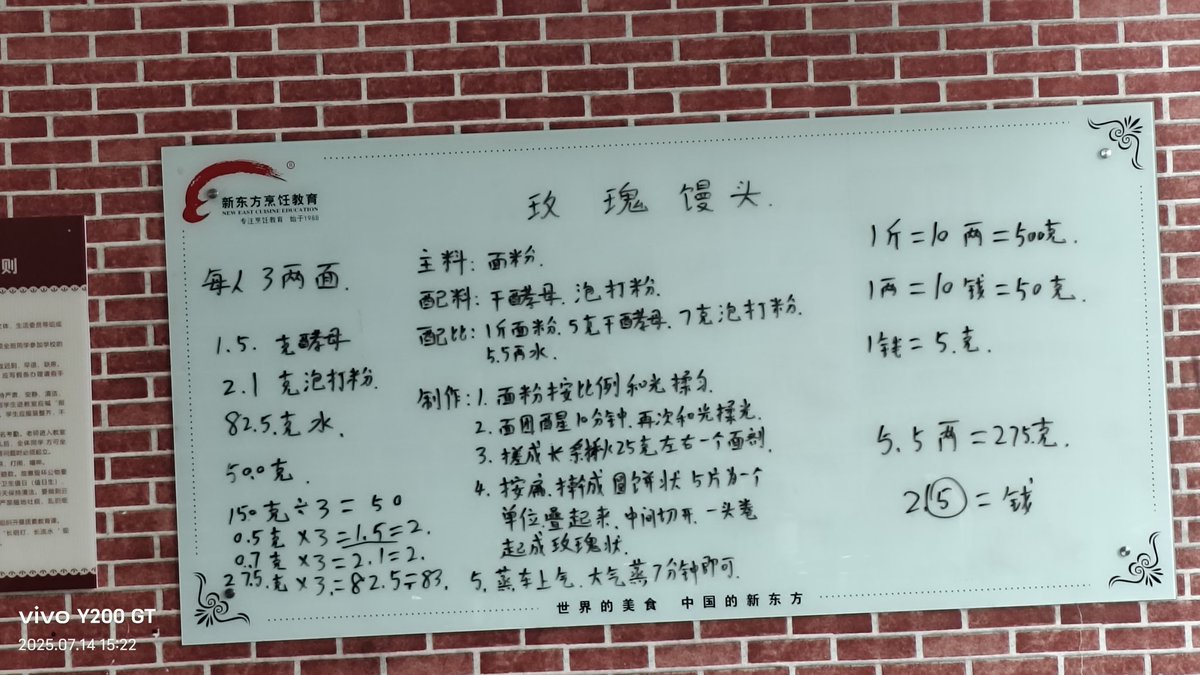 新东方烹饪教育
NEW EAST CUISINE EDUCATION
专注烹饪教育 始于1988
玫瑰馒头.
每人3两面.
1.5.克酵母
2.1克泡打粉.
82.5.克水.
500克.
150克÷3=50
0.5克×3=1.5=2.
0.7克×3=2.1=2.
27.5.克×3=82.5=83.
主料:面粉.
配料:干酵母.泡打粉.
配比:1斤面粉.5克干酵母.7克泡打粉.
5.5两水.
制作:1.面粉按比例和光揉匀.
2.面团醒10分钟.再次和光揉光.
3.搓成长条揪25克左右一个面剂.
4.按扁.擀成圆饼状5片为一个
单位叠起来.中间切开.一头卷
起成玫瑰状.
5.蒸车上气.大气蒸7分钟即可.
1斤=10两=500克.
1两=10钱=50克.
1钱=5.克.
5.5两=275克.
2.5=钱
世界的美食 中国的新东方
则
vivo Y200 GT
2025.07.14 15:22